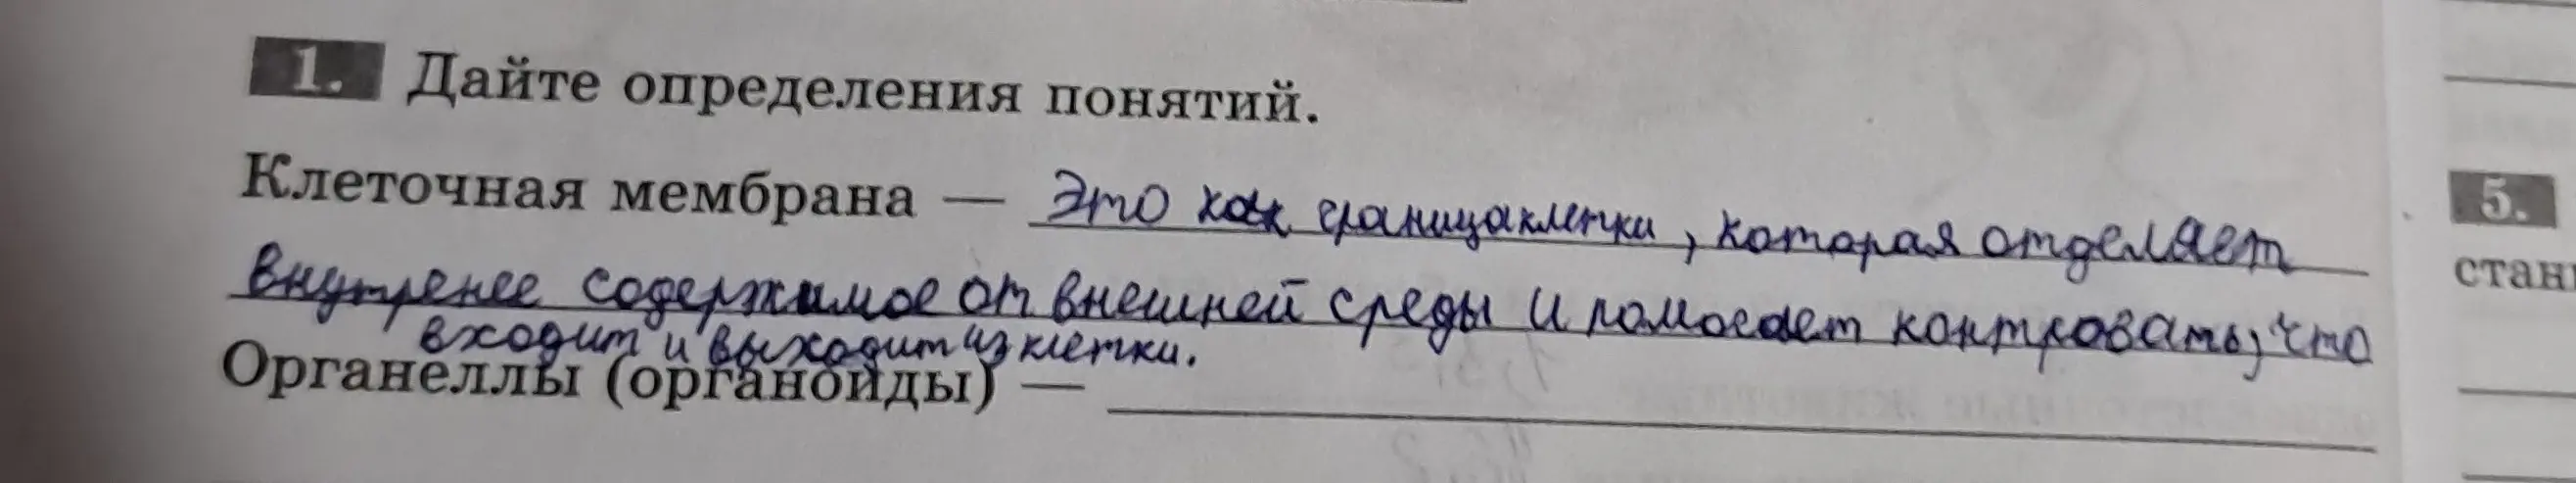 1. Дайте определения понятий.
Клеточная мембрана — Это как граница клетки, которая отделяет
внутренее содержимое от внешней среды и помогает контровать, что
входит и выходит из клетки.
Органеллы (органоиды) —
5.
стан